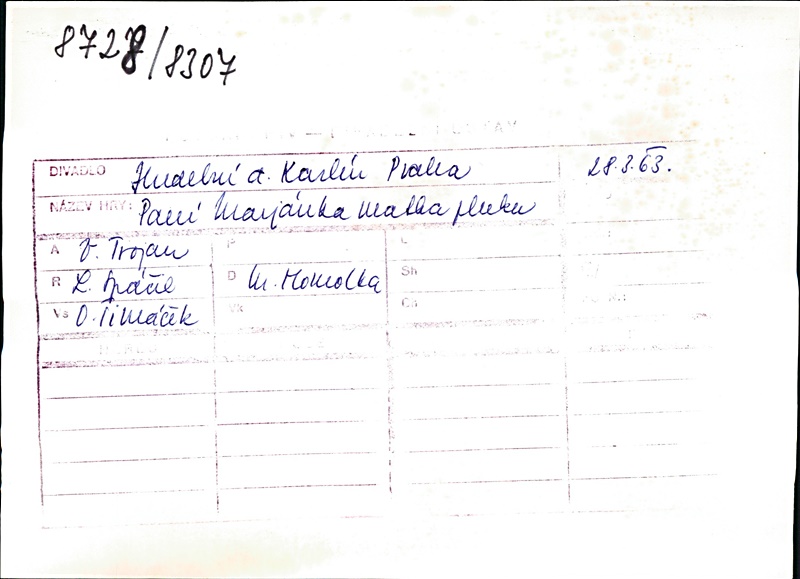 8728/8307
DIVADLO Hudební d. Karlín Praha 28.3.63.
NÁZEV HRY: Paní Marjánka matka pluku
A V. Trojan P L
R L. Spáčil D M. Homolka Sh
Vs O. Šimáček Vk Ch